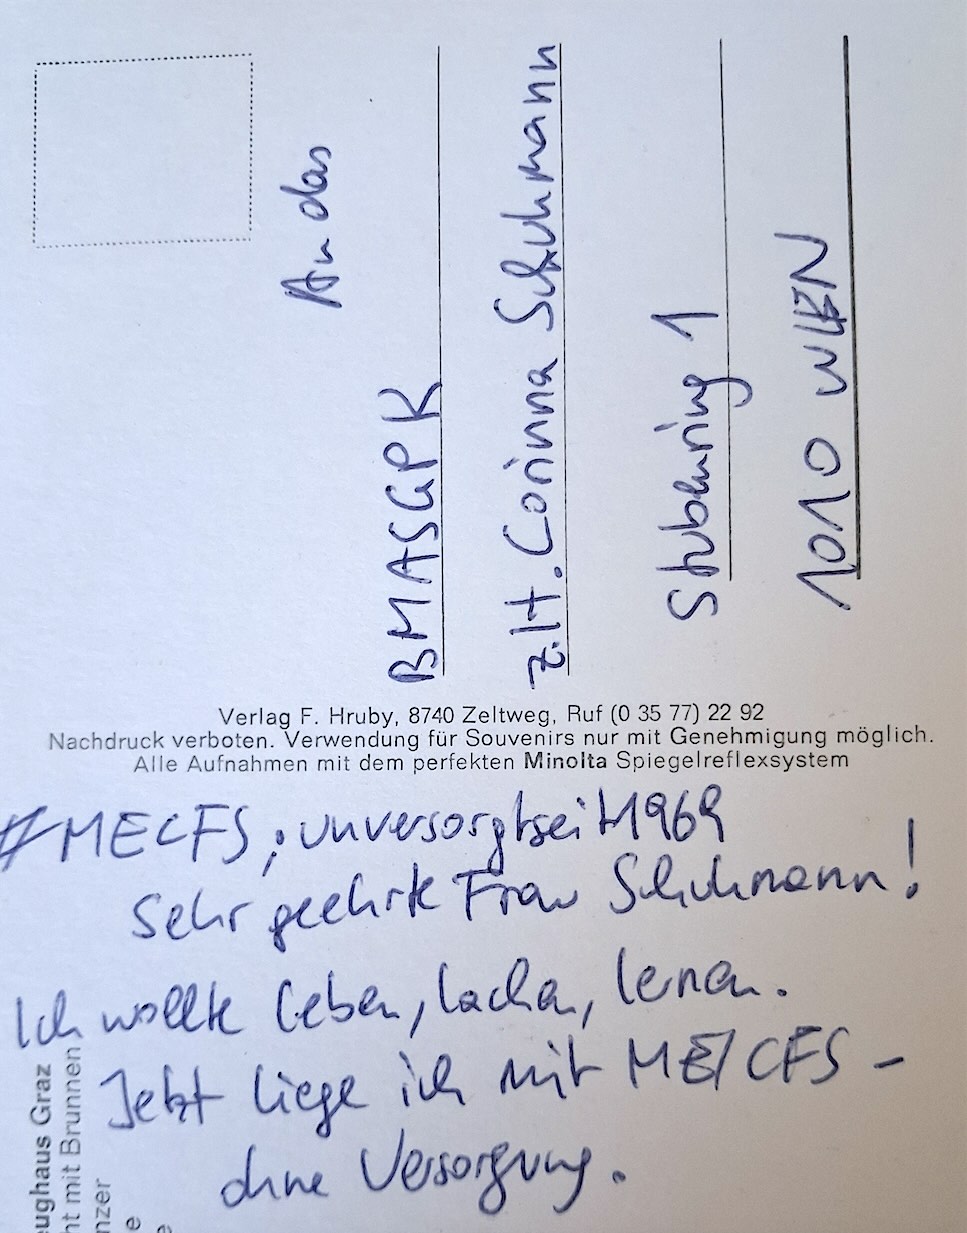 An das
BMASGPK
z.Ht. Corinna Schuhmann
Stubenring 1
1010 WIEN
Verlag F. Hruby, 8740 Zeltweg, Ruf (0 35 77) 22 92
Nachdruck verboten. Verwendung für Souvenirs nur mit Genehmigung möglich.
Alle Aufnahmen mit dem perfekten Minolta Spiegelreflexsystem
#MECFS ; unversorgtseit1969
Sehr geehrte Frau Schuhmann!
Ich wollte leben, lachen, lernen.
Jetzt liege ich mit ME/CFS -
ohne Versorgung.
eughaus Graz
ht mit Brunnen
nzer
e
e